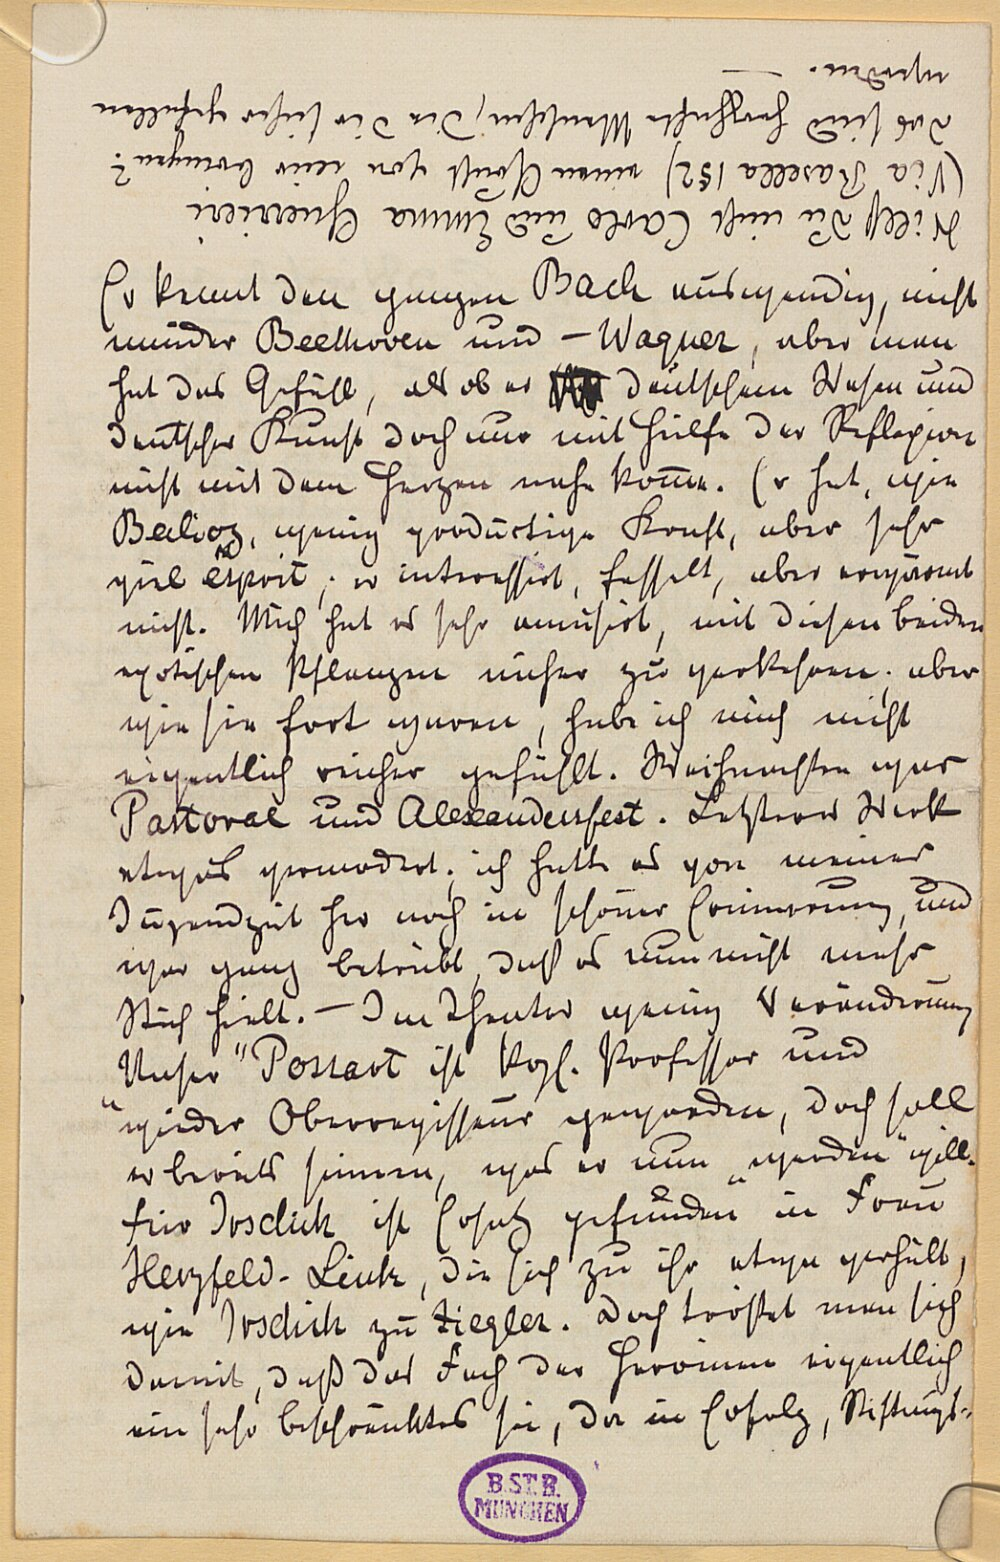 Willst Du nicht Carlo und Emma Guerrieri
(Via Rasella 152) einen Gruß von mir bringen?
das sind herzliche Menschen, die Dir sicher gefallen
werden. —
Er kennt den ganzen Bach auswendig, nicht
minder Beethoven und – Wagner, aber man
hat das Gefühl, als ob er deutschem Wesen und
deutscher Kunst doch nur mit Hülfe der Reflexion
nicht mit dem Herzen nahe kom̄e. Er hat, wie
Berlioz, wenig productive Kraft, aber sehr
viel esprit; er interessirt, fesselt, aber erwärmt
nicht. Mich hat es sehr amüsirt, mit diesen beiden
exotischen Pflanzen näher zu verkehren; aber
wie sie fort waren, habe ich mich nicht
eigentlich reicher gefühlt. Weihnachten war
Pastoral und Alexandersfest. Letzteres Werk
etwas vermodert; ich hatte es von meiner
Jugendzeit her noch in schöner Erinnerung, und
war ganz betrübt, daß es nun nicht mehr
Stich hielt. – Im Theater wenig Veränderung
Unser "Possart ist kgl. Professor und
"wieder Oberregisseur geworden, doch soll
er bereits sinnen, was er nun „werden" will.
für Ersatz gefunden in Frau
Herzfeld-Link, die sich zu ihr etwa verhält,
wie zu Ziegler. Doch tröstet man sich
damit, daß das Fach der Heroinen eigentlich
ein sehr beschränktes sei, da in Stiftungs-
B. ST. B.
MÜNCHEN